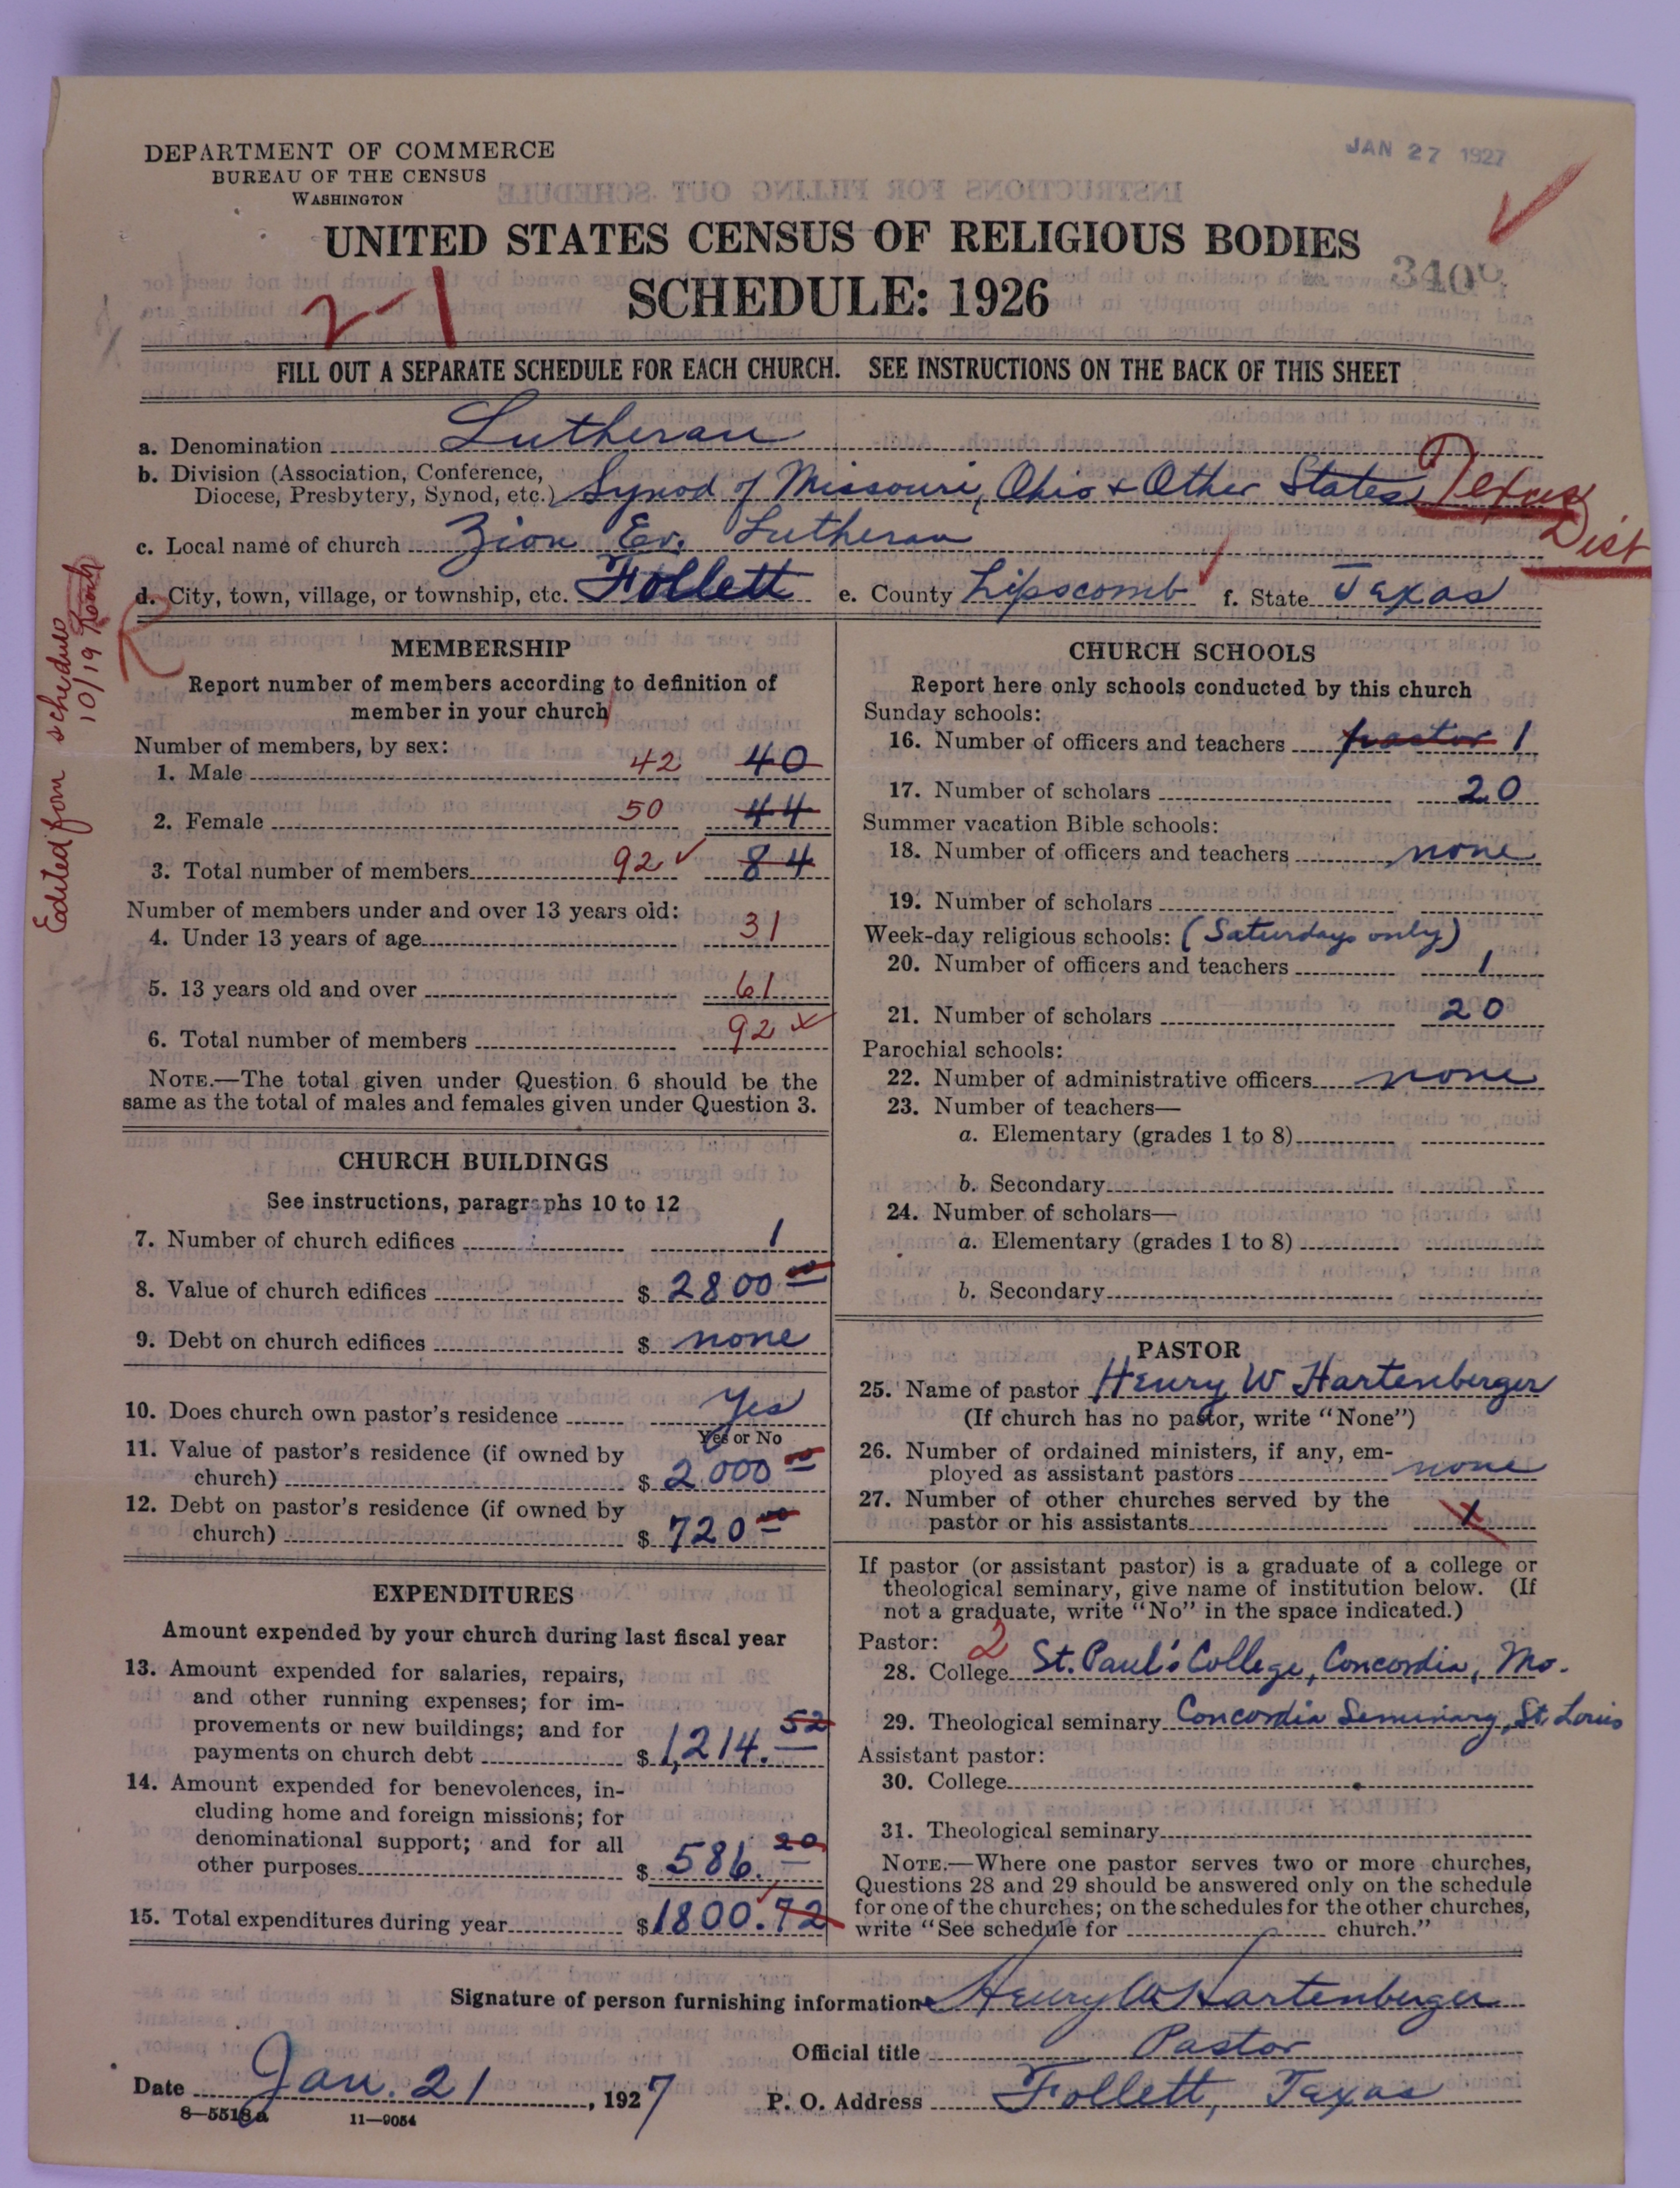 DEPARTMENT OF COMMERCE
BUREAU OF THE CENSUS
WASHINGTON
JAN 27 1927
UNITED STATES CENSUS OF RELIGIOUS BODIES
SCHEDULE: 1926
3400
2-1
FILL OUT A SEPARATE SCHEDULE FOR EACH CHURCH. SEE INSTRUCTIONS ON THE BACK OF THIS SHEET
a. Denomination Lutheran
b. Division (Association, Conference,
Diocese, Presbytery, Synod, etc.) Synod of Missouri, Ohio + Other States Texas
Dist
c. Local name of church Zion Ev. Lutheran
d. City, town, village, or township, etc. Follett e. County Lipscomb f. State Texas
Edited from schedule
10/19
MEMBERSHIP
Report number of members according to definition of
member in your church
Number of members, by sex:
1. Male 42 40
2. Female 50 44
3. Total number of members 92 84
Number of members under and over 13 years old:
4. Under 13 years of age 31
5. 13 years old and over 61
6. Total number of members 92
NOTE.—The total given under Question 6 should be the
same as the total of males and females given under Question 3.
CHURCH BUILDINGS
See instructions, paragraphs 10 to 12
7. Number of church edifices 1
8. Value of church edifices $ 2800 00
9. Debt on church edifices $ none
10. Does church own pastor's residence Yes
Yes or No
11. Value of pastor's residence (if owned by
church) $ 2000 00
12. Debt on pastor's residence (if owned by
church) $ 720 00
EXPENDITURES
Amount expended by your church during last fiscal year
13. Amount expended for salaries, repairs,
and other running expenses; for im-
provements or new buildings; and for
payments on church debt $ 1,214.52
14. Amount expended for benevolences, in-
cluding home and foreign missions; for
denominational support; and for all
other purposes $ 586.20
15. Total expenditures during year $ 1800.72
CHURCH SCHOOLS
Report here only schools conducted by this church
Sunday schools:
16. Number of officers and teachers pastor 1
17. Number of scholars 20
Summer vacation Bible schools:
18. Number of officers and teachers none
19. Number of scholars
Week-day religious schools: (Saturdays only)
20. Number of officers and teachers 1
21. Number of scholars 20
Parochial schools:
22. Number of administrative officers none
23. Number of teachers—
a. Elementary (grades 1 to 8)
b. Secondary
24. Number of scholars—
a. Elementary (grades 1 to 8)
b. Secondary
PASTOR
25. Name of pastor Henry W Hartenberger
(If church has no pastor, write "None")
26. Number of ordained ministers, if any, em-
ployed as assistant pastors none
27. Number of other churches served by the
pastor or his assistants
If pastor (or assistant pastor) is a graduate of a college or
theological seminary, give name of institution below. (If
not a graduate, write "No" in the space indicated.)
Pastor: 2
28. College St. Paul's College, Concordia, Mo.
29. Theological seminary Concordia Seminary, St. Louis
Assistant pastor:
30. College
31. Theological seminary
NOTE.—Where one pastor serves two or more churches,
Questions 28 and 29 should be answered only on the schedule
for one of the churches; on the schedules for the other churches,
write "See schedule for church."
Signature of person furnishing information Henry W Hartenberger
Official title Pastor
Date Jan. 21, 1927 P. O. Address Follett, Texas
8—5518a 11—9054